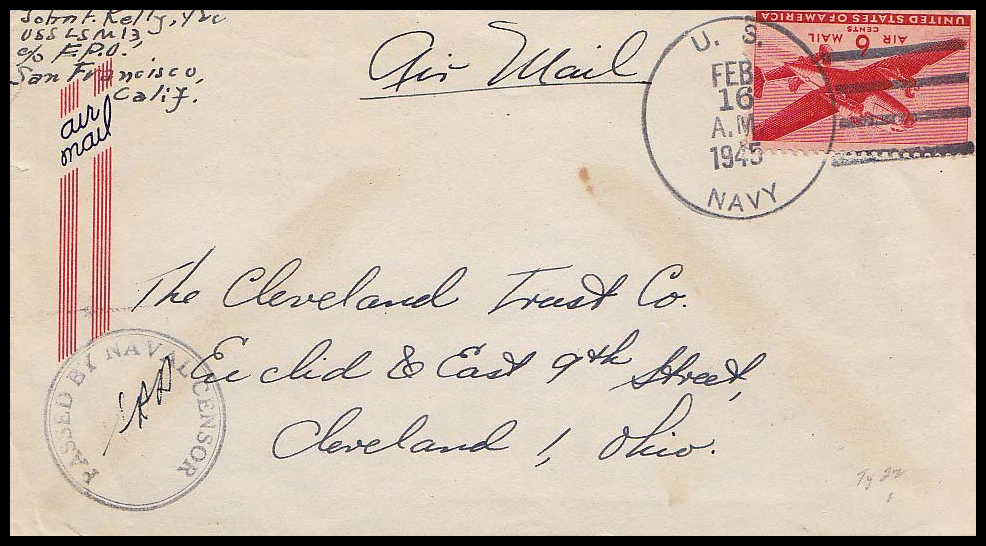 John F. Kelly, Y2c
USS LSM 13
c/o F.P.O.,
San Francisco,
Calif.
air
mail
Air Mail
U. S.
FEB
16
A.M
1945
NAVY
UNITED STATES OF AMERICA
AIR 6 MAIL
CENTS
The Cleveland Trust Co.
Euclid & East 9th Street,
Cleveland 1, Ohio.
PASSED BY NAVAL CENSOR
Ty 22